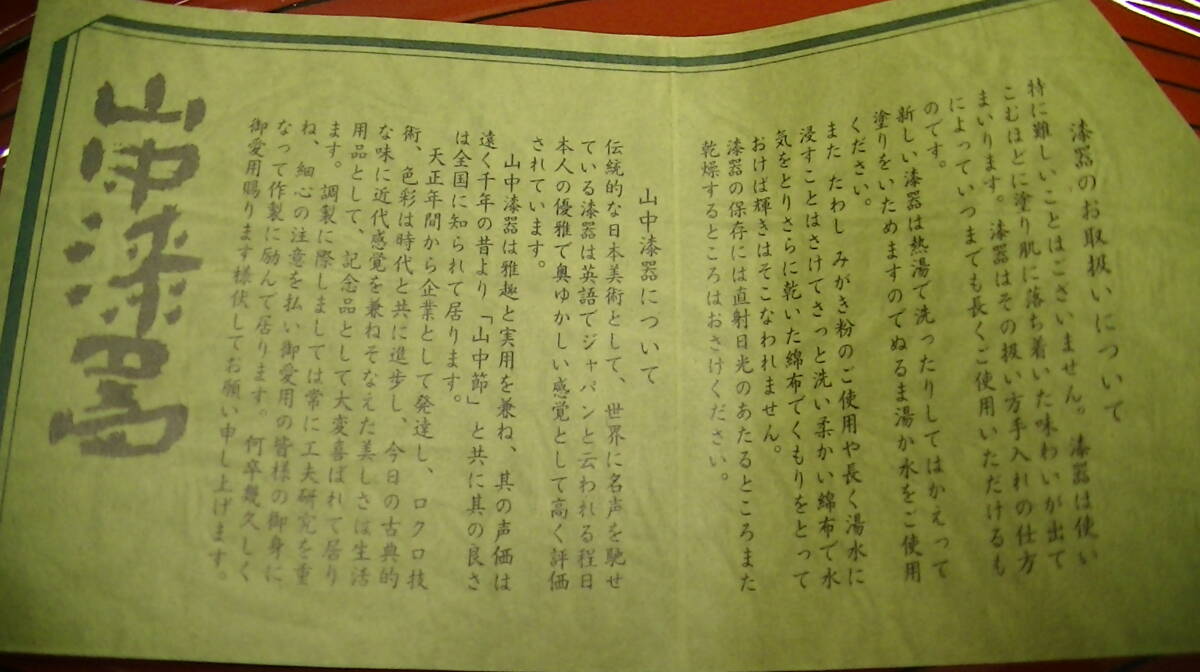 漆器のお取扱いについて
特に難しいことはございません。漆器は使い
こむほどに塗り肌に落ち着いた味わいが出て
まいります。漆器はその扱い方手入れの仕方
によっていつまでも長くご使用いただけるも
のです。
新しい漆器は熱湯で洗ったりしてはかえって
塗りをいためますのでぬるま湯か水をご使用
ください。
また たわし みがき粉のご使用や長く湯水に
浸すことはさけてさっと洗い柔かい綿布で水
気をとりさらに乾いた綿布でくもりをとって
おけば輝きはそこなわれません。
漆器の保存には直射日光のあたるところまた
乾燥するところはおさけください。
山中漆器について
伝統的な日本美術として、世界に名声を馳せ
ている漆器は英語でジャパンと云われる程日
本人の優雅で奥ゆかしい感覚として高く評価
されています。
山中漆器は雅趣と実用を兼ね、其の声価は
遠く千年の昔より「山中節」と共に其の良さ
は全国に知られて居ります。
天正年間から企業として発達し、ロクロ技
術、色彩は時代と共に進歩し、今日の古典的
な味に近代感覚を兼ねそなえた美しさは生活
用品として、記念品として大変喜ばれて居り
ます。調製に際しましては常に工夫研究を重
ね、細心の注意を払い御愛用の皆様の御身に
なって作製に励んで居ります。何卒幾久しく
御愛用賜ります様伏してお願い申し上げます。
山中漆器